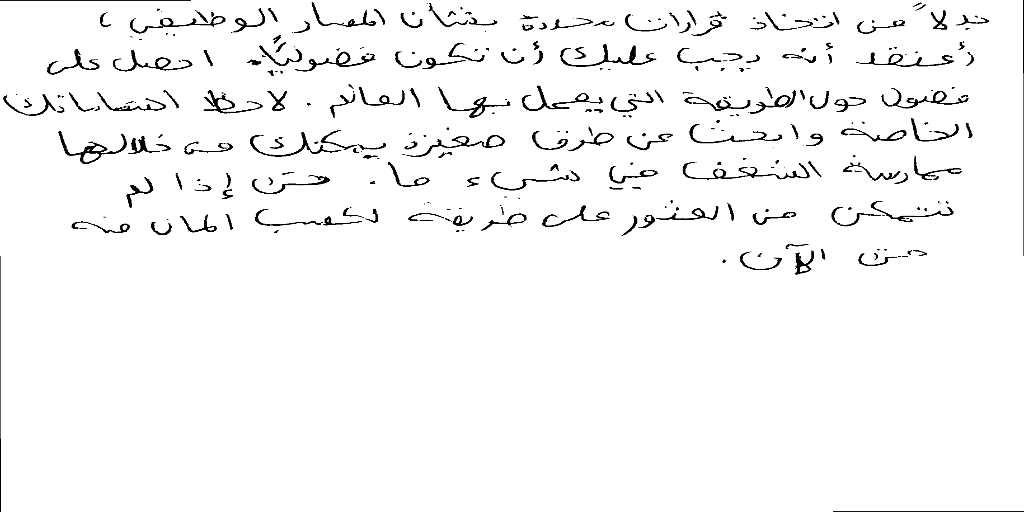 بدلاً من اتخاذ قرارات محددة بشأن المسار الوظيفي ،
أعتقد أنه يجب عليك أن تكون فضوليًا. احصل على
فضول حول الطريقة التي يعمل بها العالم. لاحظ اهتماماتك
الخاصة وابحث عن طرق صغيرة يمكنك من خلالها
ممارسة الشغف في شيء ما. حتى إذا لم
تتمكن من العثور على طريقة لكسب المال منه
حتى الآن.